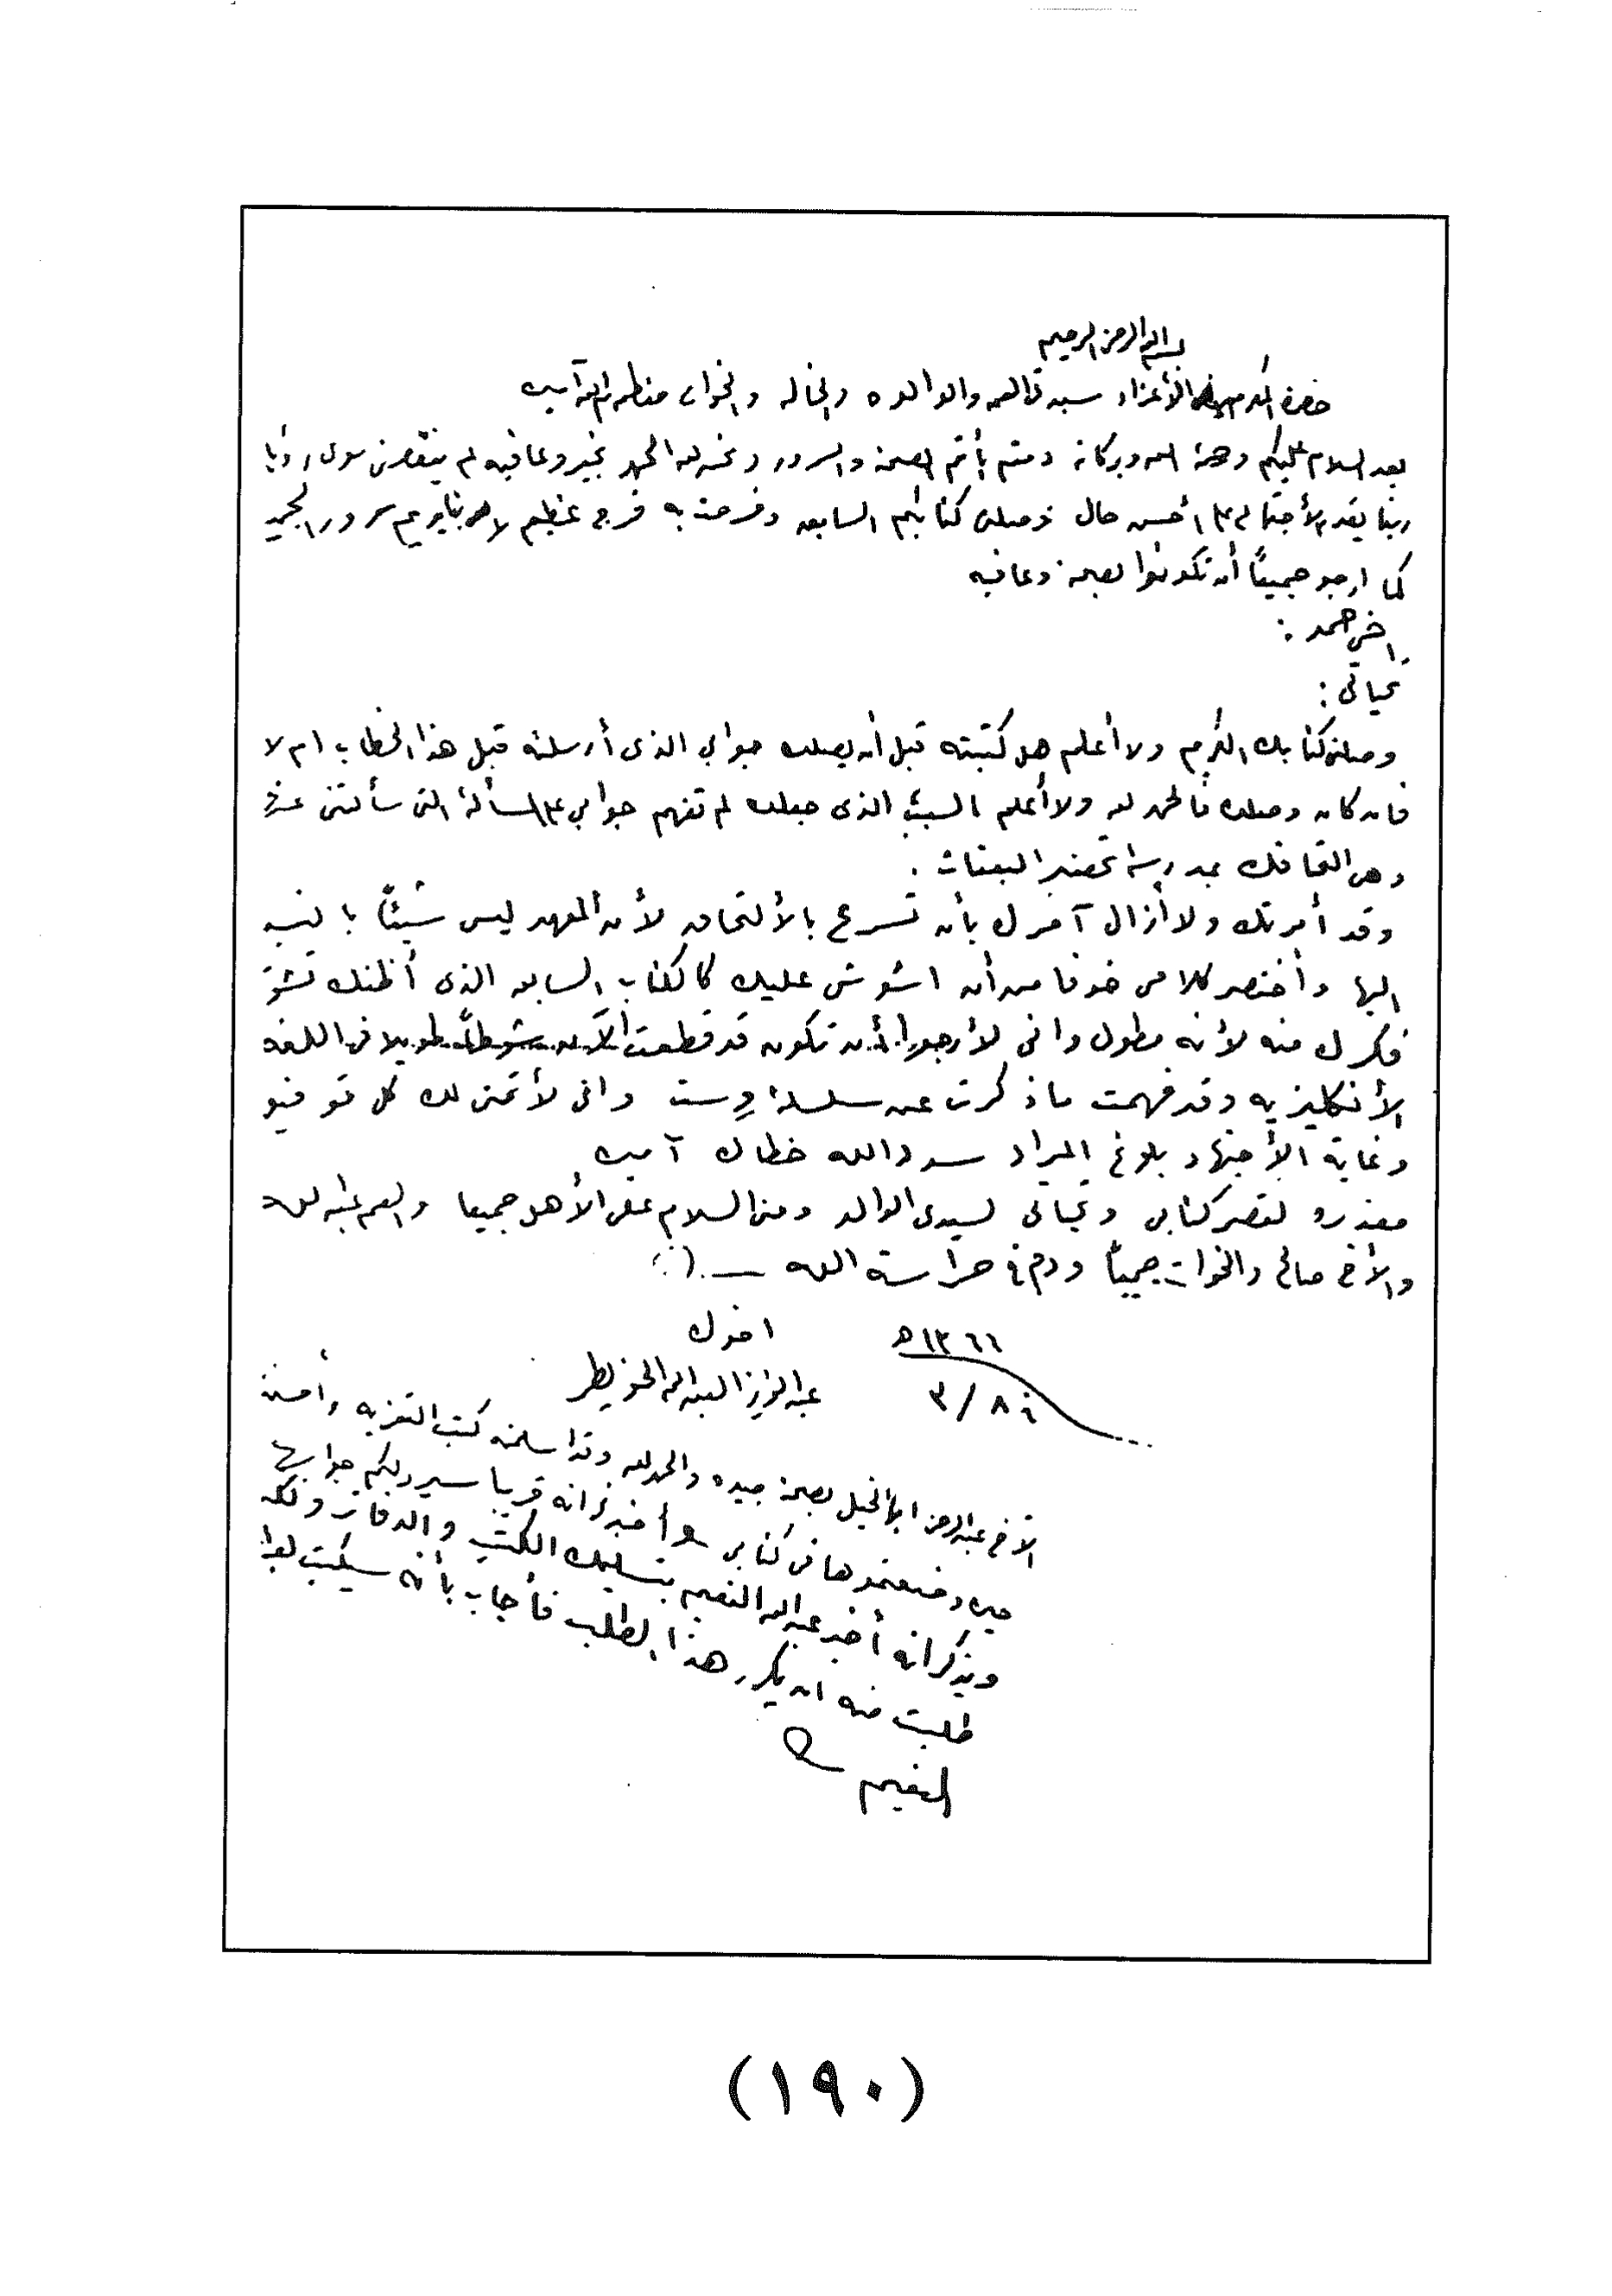 بسم الله الرحمن الرحيم
حضرة المكرمين الأعزاء سيدتي العمه والوالده والخاله والخوات حفظهم الله آمين
بعد السلام عليكم ورحمة الله وبركاته دمتم بأتم الصحة والسرور ونحن لله الحمد بخير وعافيه لم ينقصنا سوى رؤياكم
ربنا يقدر الأجتماع على أحسن حال وصلني كتابكم السابق وفرحت به فرح عظيم سرور الجميع
كما ارجو جميعاً أن تكونوا بصحة وعافيه
اخي حمد :
تحياتي :
وصلني كتابك الكريم ولا أعلم هل كتبته قبل أن يصلك جوابي الذى أرسلته قبل هذا الخطاب ام لا
فان كان وصلك فالحمد لله ولا أعلم السبب الذى جعلك لم تفهم جوابي على المسألة التى سألتني عنها
وهى التحاقك بمدرسة تحضير البعثات .
وقد أمرتك ولا أزال آمرك بأن تسرع بالألتحاق لأن المعهد ليس شيئاً بالنسبه
اليها وأختصر كلامى خوفا من أن اشوش عليك كالكتاب السابق الذى أظنك تشوش
فكرك منه لأنه مطول وانى لأرجو أن تكون قد قطعت الآن شوطاً طويلا فى اللغه
الأنكليزيه وقد فهمت ما ذكرت عن سلسلة وست وانى لأتمنى لك كل توفيق
وغاية الأجتهاد بلوغ المراد سدد الله خطاك آمين
معذره لقصر كتابى وتحياتى لسيدى الوالد ومنى السلام على الأهل جميعا والعم عبدالله
والأخ صالح والخوات جميعاً ودم في حراسة الله
١٣٦٦ هـ
اخوك
٣/٨
عبدالعزيز العبدالله الخويطر
الأخ عبدالرحمن ابا الخيل بصحة جيده والحمد لله وقد استلمت كتب التعزيه وأحسنت
حين وضعتموها فى كتابى وأخبرني انه قريبا سيرد لكم جوابها
ويذكر انه أخبر عبدالله النعيم بتسليمك الكتب والدفاتر ولكن
طلبت منه ان يكرر هذا الطلب فأجاب بأنه سيكتب لعبدالله
النعيم
(١٩٠)